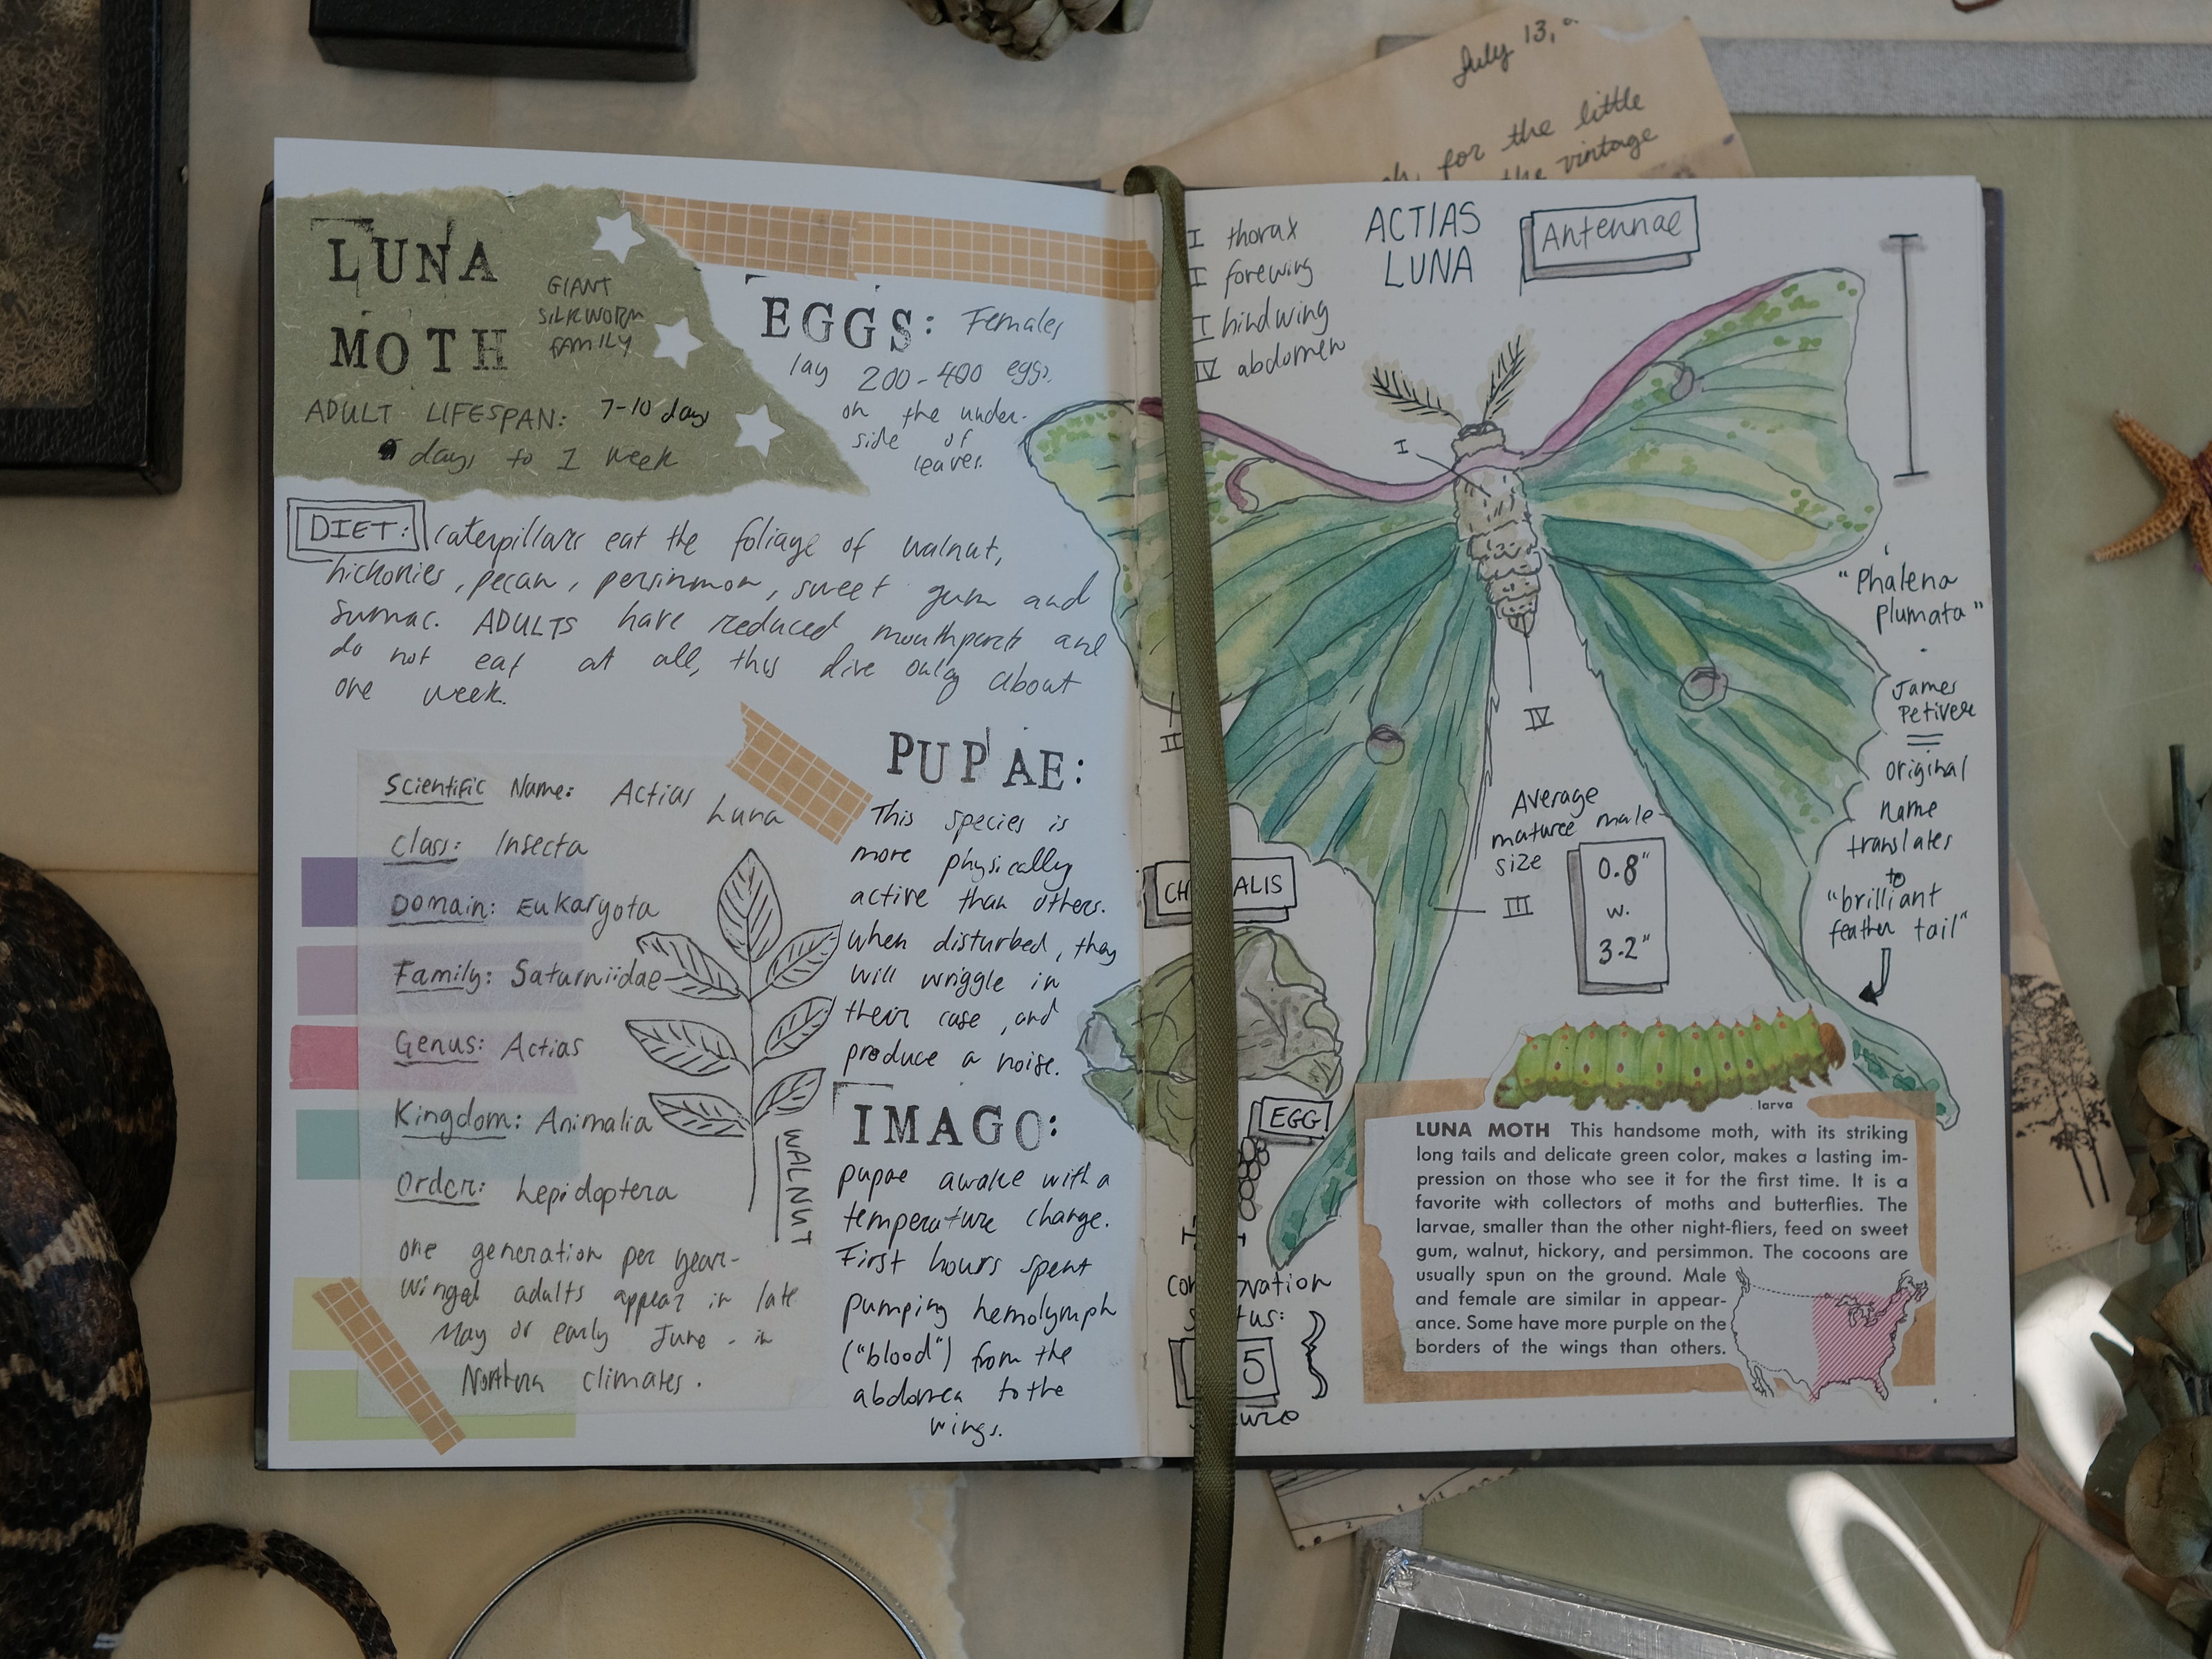 July 13,
for the little
the vintage
LUNA
MOTH
GIANT
SILKWORM
FAMILY
ADULT LIFESPAN: 7-10 days
days to 1 week
EGGS: Females
lay 200-400 eggs
on the under-
side of
leaves.
DIET: Caterpillars eat the foliage of walnut,
hickories, pecan, persimmon, sweet gum and
sumac. ADULTS have reduced mouthparts and
do not eat at all, thus live only about
one week.
Scientific Name: Actias
Luna
Class: Insecta
Domain: Eukaryota
Family: Saturniidae
Genus: Actias
Kingdom: Animalia
Order: Lepidoptera
WALNUT
one generation per year-
winged adults appear in late
May or early June - in
Northern climates.
PUPAE:
This species is
more physically
active than others.
when disturbed, they
will wriggle in
their case, and
produce a noise.
IMAGO:
pupae awake with a
temperature change.
First hours spent
pumping hemolymph
("blood") from the
abdomen to the
wings.
I thorax
I forewing
I hindwing
IV abdomen
ACTIAS
LUNA
Antennae
I
II
IV
III
"Phalena
plumata"
James
Petiver
=
original
name
translates
to
"brilliant
feather tail"
Average
mature male
size
0.8"
w.
3.2"
CH ALIS
EGG
con vation
s tus:
5
larva
LUNA MOTH This handsome moth, with its striking
long tails and delicate green color, makes a lasting im-
pression on those who see it for the first time. It is a
favorite with collectors of moths and butterflies. The
larvae, smaller than the other night-fliers, feed on sweet
gum, walnut, hickory, and persimmon. The cocoons are
usually spun on the ground. Male
and female are similar in appear-
ance. Some have more purple on the
borders of the wings than others.